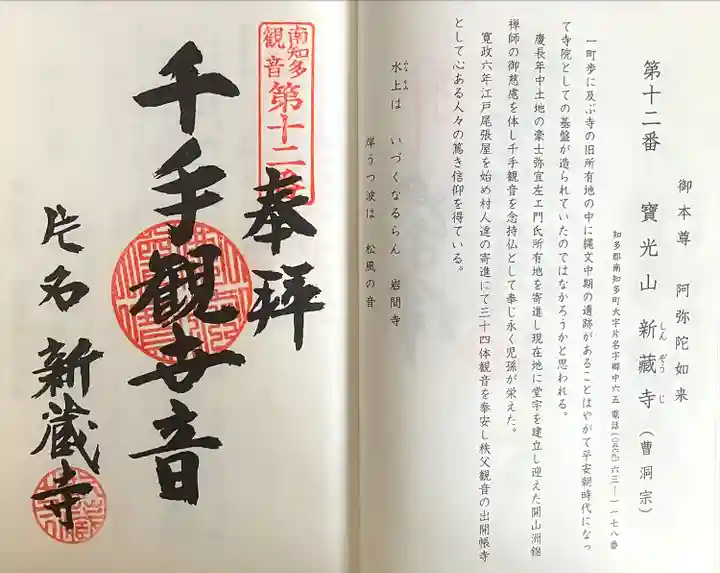 御本尊 阿弥陀如来
第十二番 寶光山 新蔵寺（曹洞宗）
しんぞうじ
知多郡南知多町大字片名字郷中六五 電話（〇五六九）六三―一一七八番
一町歩に及ぶ寺の旧所有地の中に縄文中期の遺跡があることはやがて平安朝時代になっ
て寺院としての基盤が造られていたのではなかろうかと思われる。
慶長年中土地の豪士弥宜左エ門氏所有地を寄進し現在地に堂宇を建立し迎えた開山洲鑑
禅師の御慈慮を体し千手観音を念持仏として奉じ永く児孫が栄えた。
寛政六年江戸尾張屋を始め村人達の寄進にて三十四体観音を奉安し秩父観音の出開帳寺
として心ある人々の篤き信仰を得ている。
みなかみ
水上は いづくなるらん 岩間寺
岸うつ波は 松風の音
南知多
観音
第十二番
奉拝
千手観世音
片名 新蔵寺